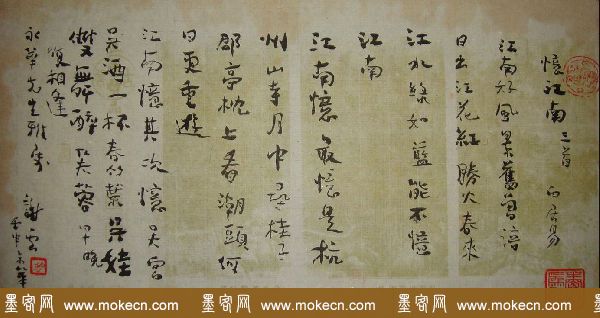 憶江南 三首 白居易
江南好風景舊曾諳
日出江花紅勝火春來
江水綠如藍能不憶
江南
江南憶最憶是杭
州山寺月中尋桂子
郡亭枕上看潮頭何
日更重遊
江南憶其次憶吳宮
吳酒一杯春竹葉吳娃
雙舞醉芙蓉早晚
復相逢
永華先生雅屬
謝雲
墨客网 www.mokecn.com 墨客网 www.mokecn.com 墨客网 www.mokecn.com